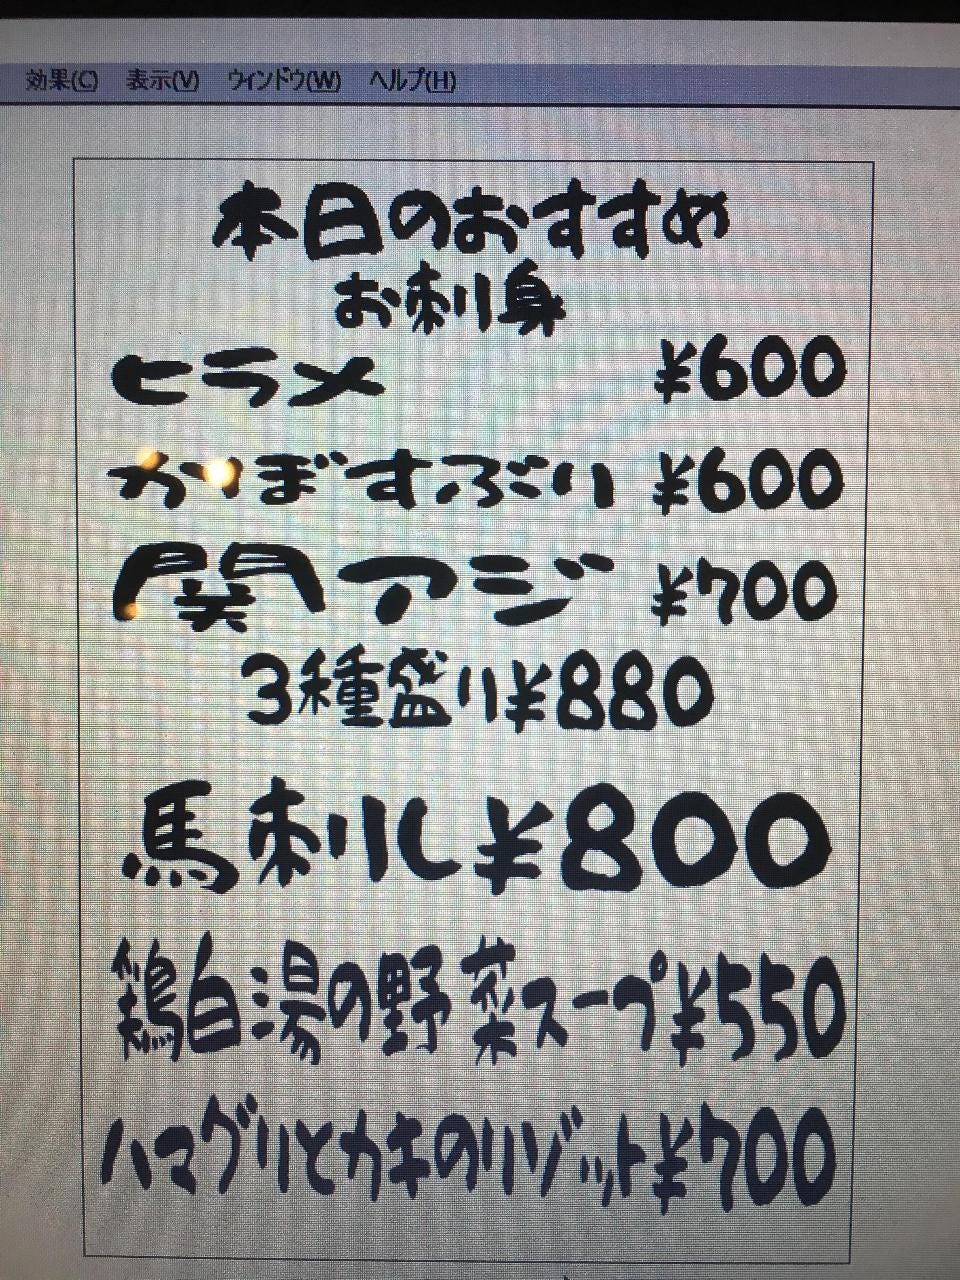 効果(C) 表示(V) ウィンドウ(W) ヘルプ(H)
本日のおすすめ
お刺身
ヒラメ ¥600
かぼすぶり ¥600
関アジ ¥700
3種盛り¥880
馬刺し¥800
鶏白湯の野菜スープ¥550
ハマグリとカキのリゾット¥700